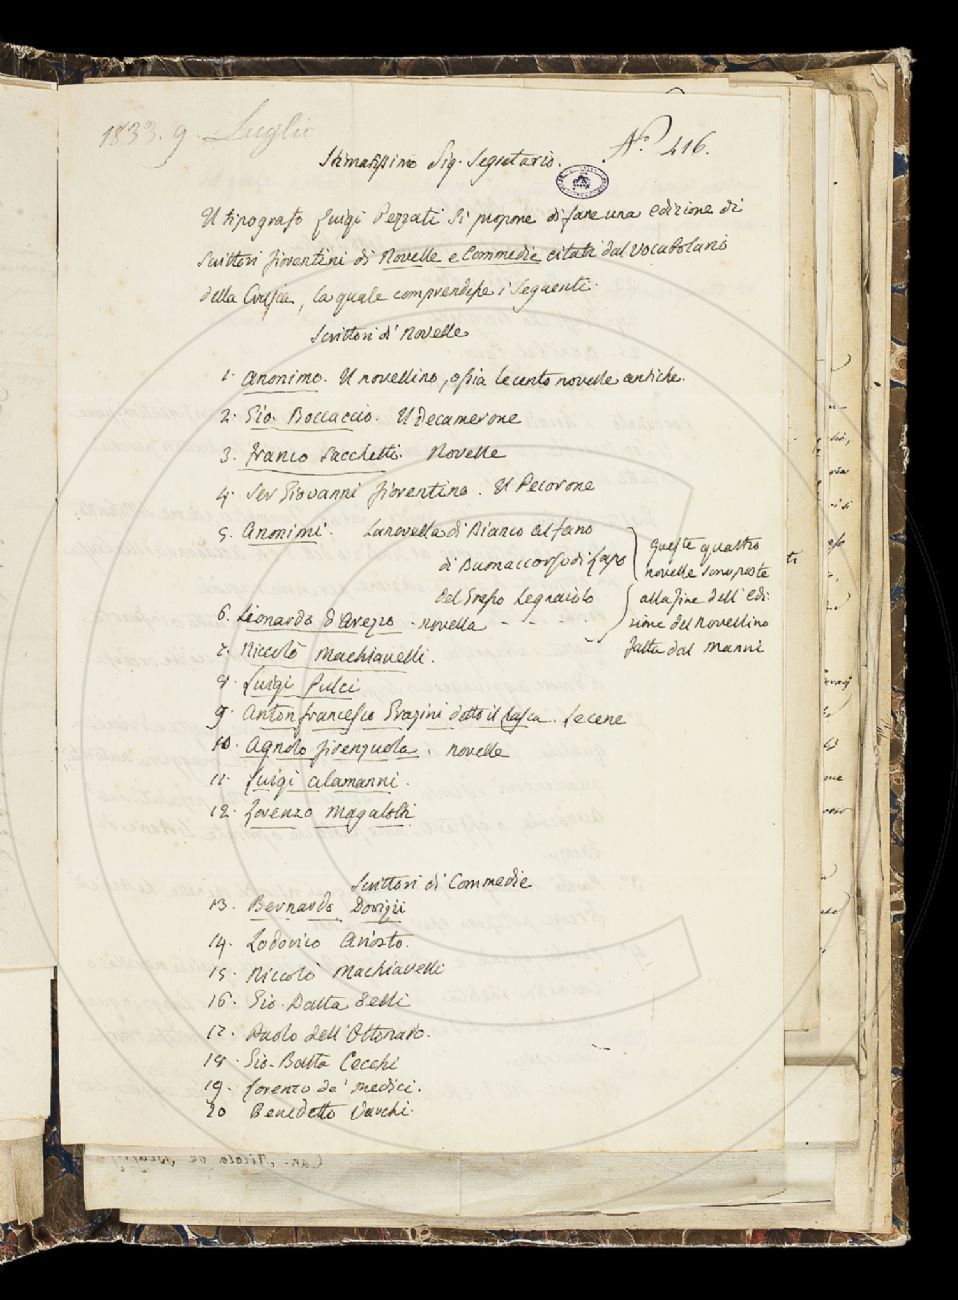 1833. 9. Luglio
N.° 416.
Stimatissimo Sig. Segretario.
Il tipografo Luigi Pezzati si propone di fare una edizione di
Scrittori fiorentini di Novelle e Commedie citati dal vocabolario
della Crusca, la quale comprendesse i seguenti.
Scrittori di Novelle
1. Anonimo. Il novellino, ossia le cento novelle antiche.
2. Gio. Boccaccio. Il Decamerone
3. Franco Sacchetti. Novelle
4. Ser Giovanni fiorentino. Il Pecorone
5. Anonimi. La novella di Bianco Alfano
di Buonaccorso di Lapo
del Grasso Legnaiolo
6. Lionardo d'Arezzo. novella
Queste quattro
novelle sono poste
alla fine dell'edi-
zione del Novellino
fatta dal Manni
7. Niccolò Machiavelli.
8. Luigi Pulci
9. Antonfrancesco Grazini detto il Lasca. Le cene
10. Agnolo firenzuola. novelle
11. Luigi Alamanni.
12. Lorenzo Magalotti
Scrittori di Commedie
13. Bernardo Dovizii
14. Lodovico Ariosto.
15. Niccolò Machiavelli
16. Gio. Batta Gelli
17. Paolo dell'Ottonaro.
18. Gio. Batta Cecchi
19. Lorenzo de' Medici.
20 Benedetto Varchi.